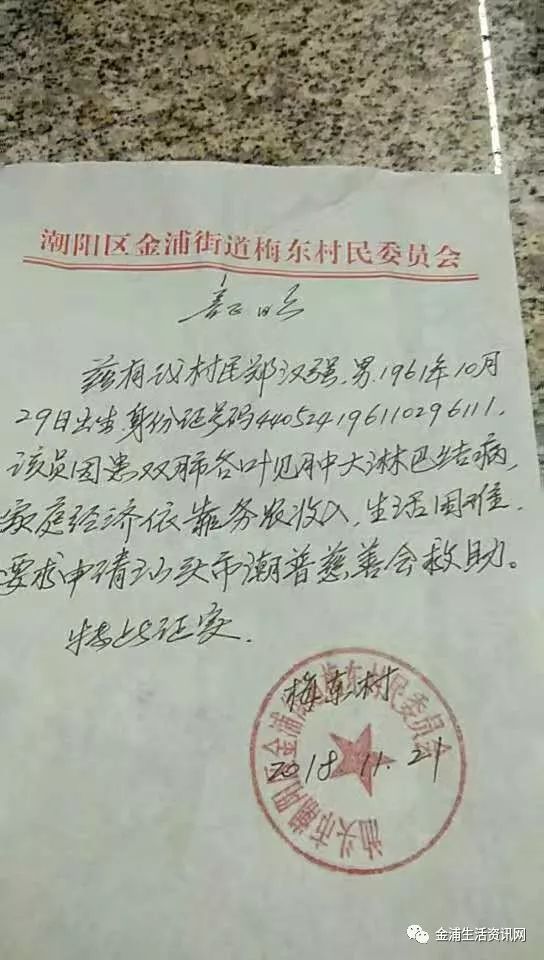 潮阳区金浦街道梅东村民委员会
证明
兹有我村民郑汉强,男,1961年10月
29日出生,身份证号码440524196110296111,
该员因患双肺各叶见肿大淋巴结病,
家庭经济依靠务农收入,生活困难,
要求申请汕头市潮普慈善会救助。
特此证实.
梅东村
2018.11.21
汕头市潮阳区金浦街道梅东村民委员会
金浦生活资讯网